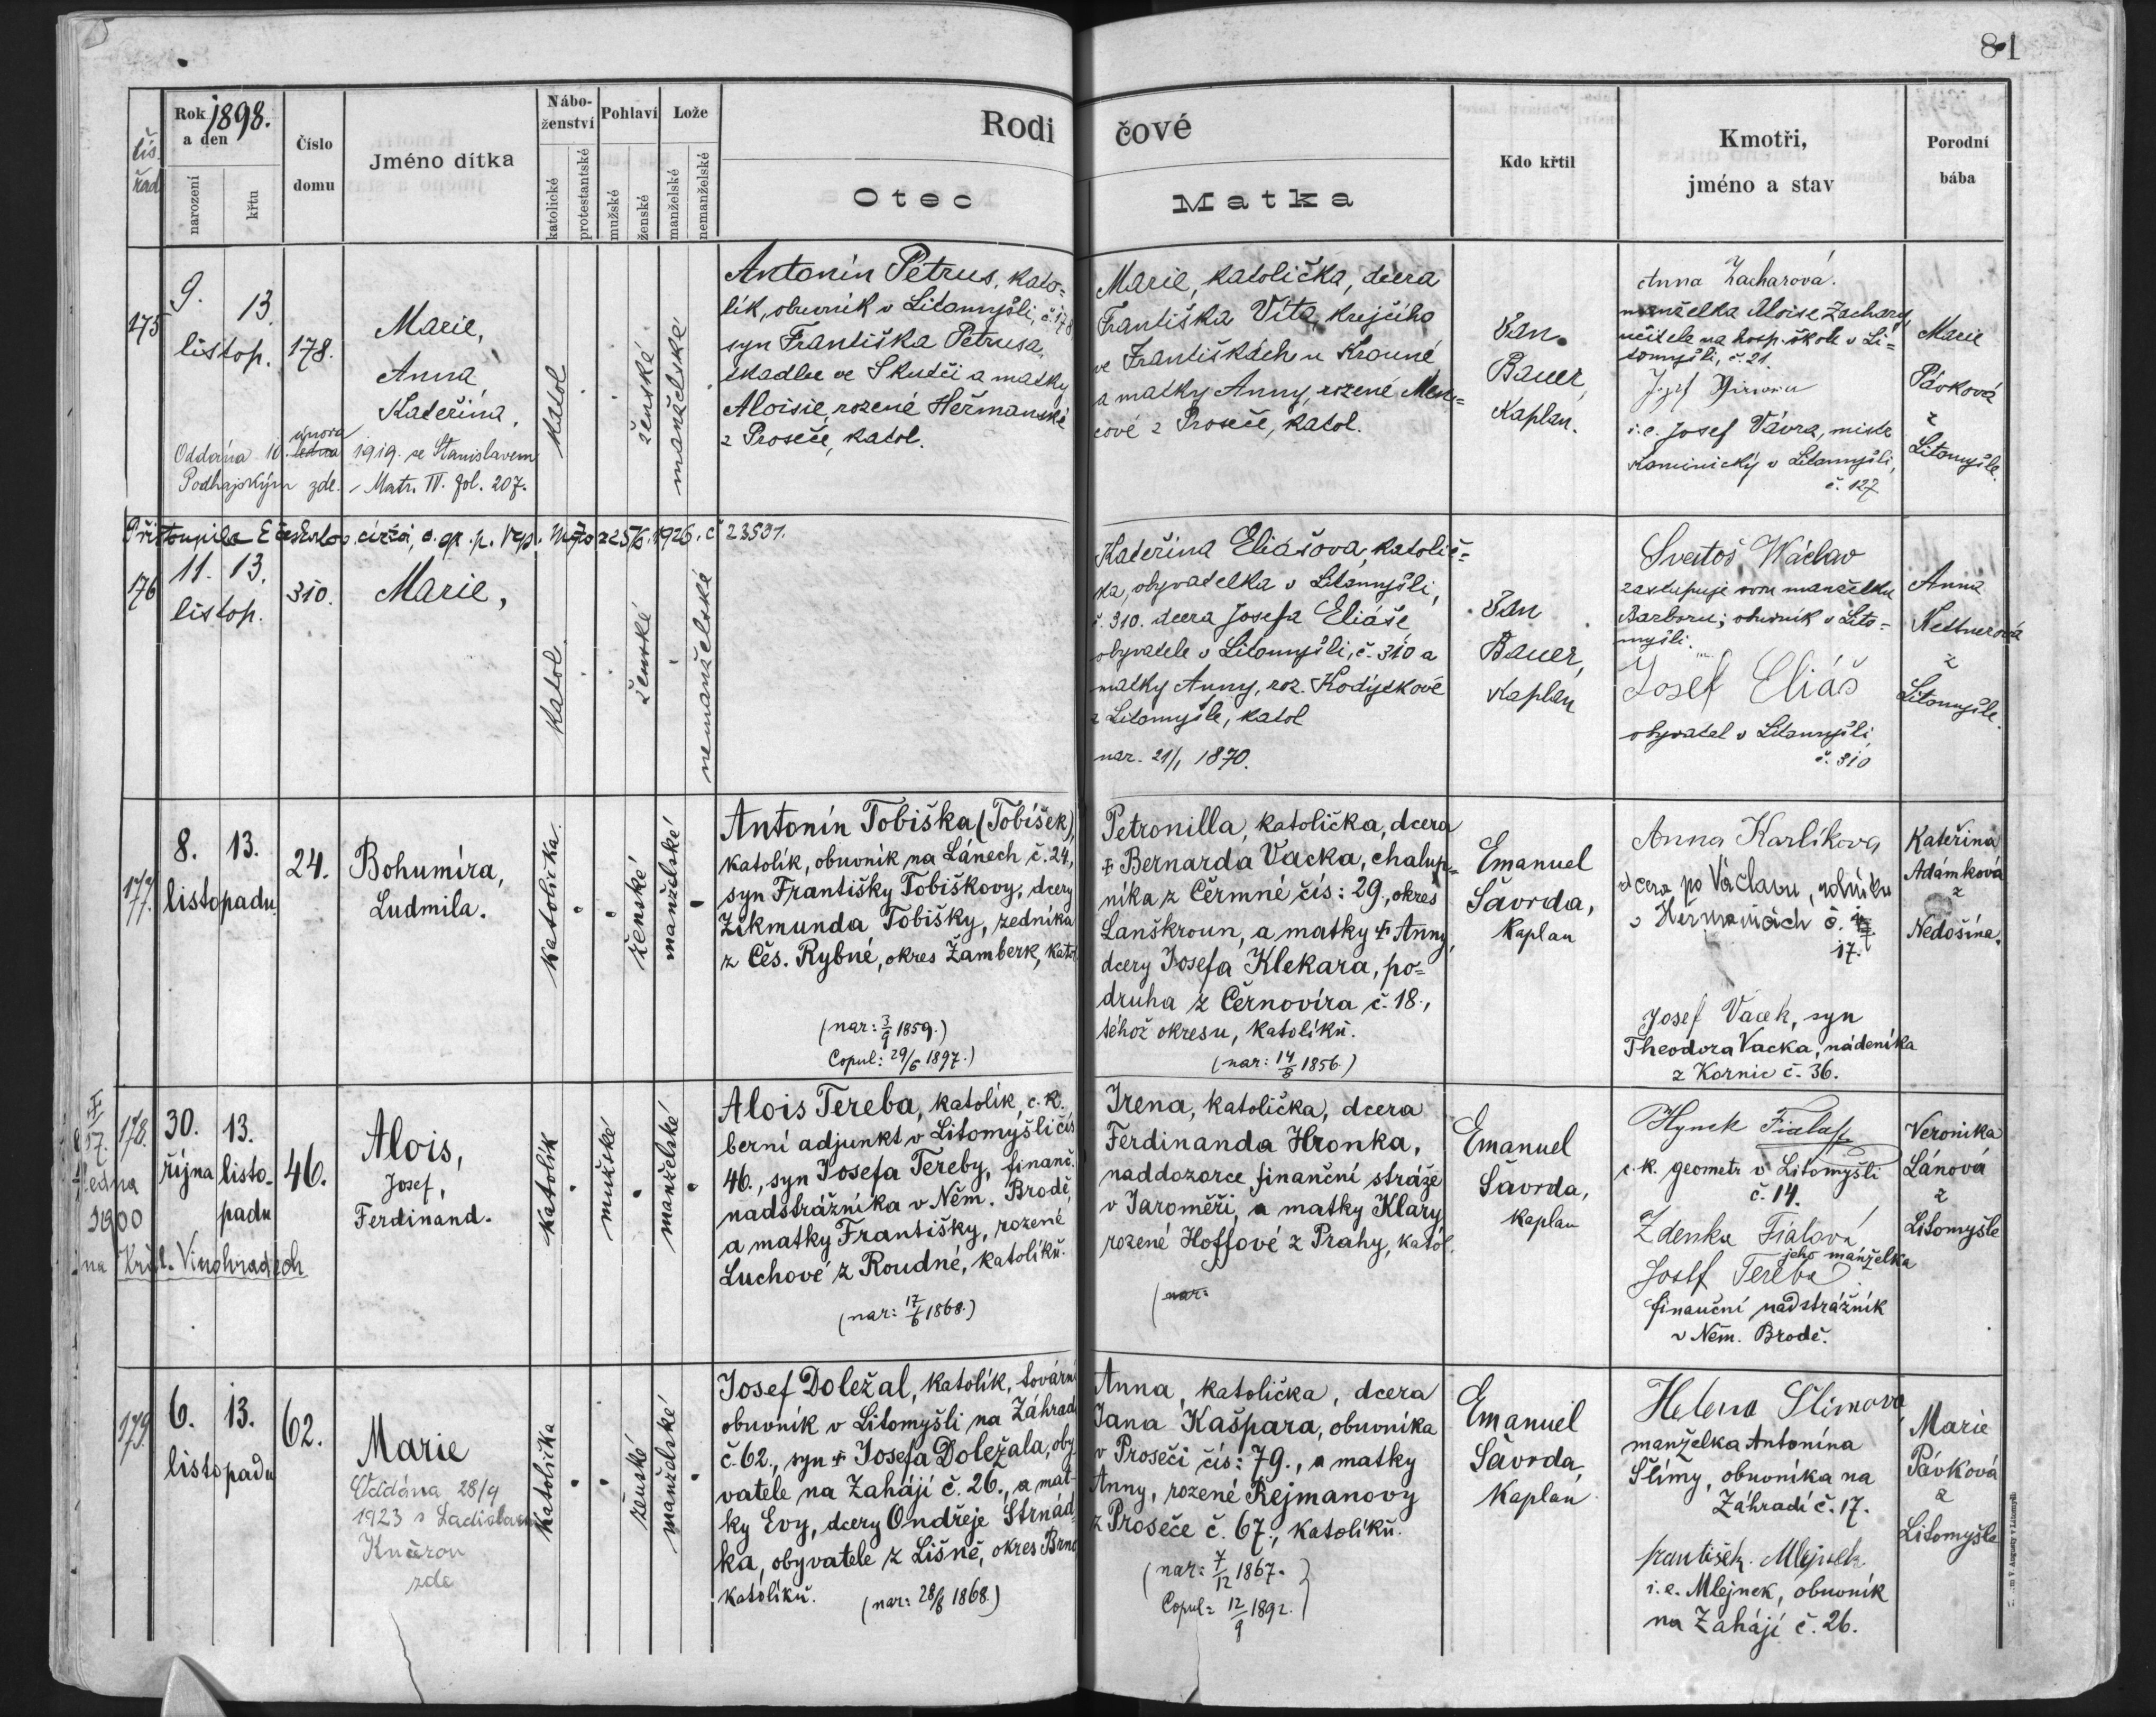 81
čís. řad.
Rok 1898.
a den
narození
křtu
Číslo
domu
Jméno dítka
Nábo-
ženství
katolické
protestantské
Pohlaví
mužské
ženské
Lože
manželské
nemanželské
Rodičové
Otec
Matka
Kdo křtil
Kmotři,
jméno a stav
Porodní
bába
175
9. 13.
listop.
178.
Marie,
Anna,
Kateřina,
Oddána 10. února ledna 1919. se Stanislavem
Podhajským zde. Matr. IV. fol. 207.
Katol
ženské
manželské
Antonín Petrus, kato=
lík, obuvník v Litomyšli, č. 178
syn Františka Petrusa,
tkadlce ve Skutči a matky
Aloisie, rozené Heřmanské
z Proseče, katol.
Marie, katolička, dcera
Františka Víta, krejčího
ve Františkách u Krouné
a matky Anny, rozené Men=
cové z Proseče, katol.
Jan
Bauer,
Kaplan.
Anna Zacharová.
manželka Aloise Zachary,
učitele na hosp. škole v Li=
tomyšli, č. 21.
Josef
i.e. Josef Vávra, mistr
kominický v Litomyšli,
č. 127
Marie
Pávková
z
Litomyšle.
Přistoupila k českoslov. církvi, o. 25/6. 1926. č 23501.
176
11. 13.
listop.
310.
Marie,
Katol.
ženské
nemanželské
Kateřina Eliášova, katolič=
ka, obyvatelka v Litomyšli,
č. 310. dcera Josefa Eliáše
obyvatele v Litomyšli, č. 310 a
matky Anny, roz. Kodýtkové
z Litomyšle, katol
nar. 21/1 1870.
Jan
Bauer,
Kaplan
Svatoš Václav
zastupuje svou manželku
Barboru; obuvník v Lito=
myšli.
Josef Eliáš
obyvatel v Litomyšli
č. 310
Anna
Nettnerová
z
Litomyšle.
177.
8. 13.
listopadu.
24.
Bohumíra,
Ludmila.
Katolička.
ženské
manželské
Antonín Tobiška (Tobíšek),
katolík, obuvník na Lánech č. 24,
syn Františky Tobiškovy, dcery
Zikmunda Tobišky, zedníka
z Čes. Rybné, okres Žamberk, katol
(nar: 3/9 1859.)
Copul: 29/6 1897.)
Petronilla, katolička, dcera
+ Bernarda Vacka, chalup=
níka z Čermné čís: 29., okres
Lanškroun, a matky + Anny,
dcery Josefa Klekara, po=
druha z Černovíra č. 18.,
téhož okresu, katolíků.
(nar: 14/8 1856.)
Emanuel
Šavrda,
Kaplan
Anna Karlíkova
dcera po Václavu, rolníku
v Heřmanicích č.
17.
Josef Vacek, syn
Theodora Vacka, nádeníka
z Kornic č. 36.
Kateřina
Adámková
z
Nedošína.
+ 17. ledna
1900
na Král. Vinohradech
178.
30. 13.
října listo-
padu
46.
Alois,
Josef,
Ferdinand.
Katolík
mužské
manželské
Alois Tereba, katolík, c. k.
berní adjunkt v Litomyšli čís
46., syn Josefa Tereby, finanč.
nadstrážníka v Něm. Brodě,
a matky Františky, rozené
Luchové z Roudné, katolíků.
(nar: 17/6 1868.)
Irena, katolička, dcera
Ferdinanda Hronka,
naddozorce finanční stráže
v Jaroměři, a matky Klary,
rozené Hoffové z Prahy, katol.
(nar:
Emanuel
Šavrda,
Kaplan
Hynek Fiala
c. k. geometr v Litomyšli
č. 14.
Zdenka Fialová
jeho manželka
Josef Tereba
finanční nadstrážník
v Něm. Brodě.
Veronika
Lánová
z
Litomyšle
179.
6. 13.
listopadu
62.
Marie
Oddána 28/9
1923 s Ladislavem
zde
Katolička
ženské
manželské
Josef Doležal, katolík, tovární
obuvník v Litomyšli na Záhrad
č. 62., syn + Josefa Doležala, oby
vatele na Zahájí č. 26., a mat-
ky Evy, dcery Ondřeje Strnad-
ka, obyvatele z Lišně, okres Brno
katolíků. (nar: 28/8 1868.)
Anna, katolička, dcera
Jana Kašpara, obuvníka
v Proseči čís: 79., a matky
Anny, rozené Rejmanovy
z Proseče č. 67., katolíků.
(nar: 7/12 1867.
Copul: 12/9 1892.)
Emanuel
Šavrda,
Kaplan
Helena Slimova
manželka Antonína
Šlímy, obuvníka na
Záhradí č. 17.
František Mlejnek
i. e. Mlejnek, obuvník
na Zahájí č. 26.
Marie
Pávková
z
Litomyšle